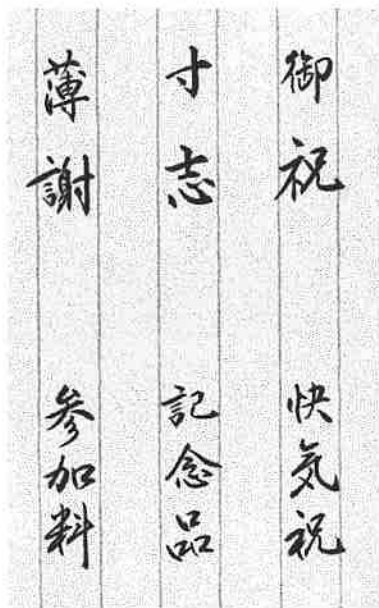 御祝
快気祝
寸志
記念品
薄謝
参加料